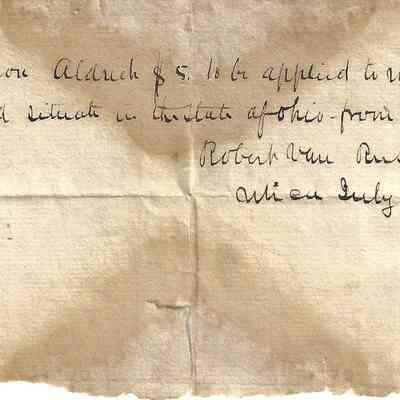 Aldrich $5. to be applied to
situate in the State of Ohio - from
Robert Van
Utica July